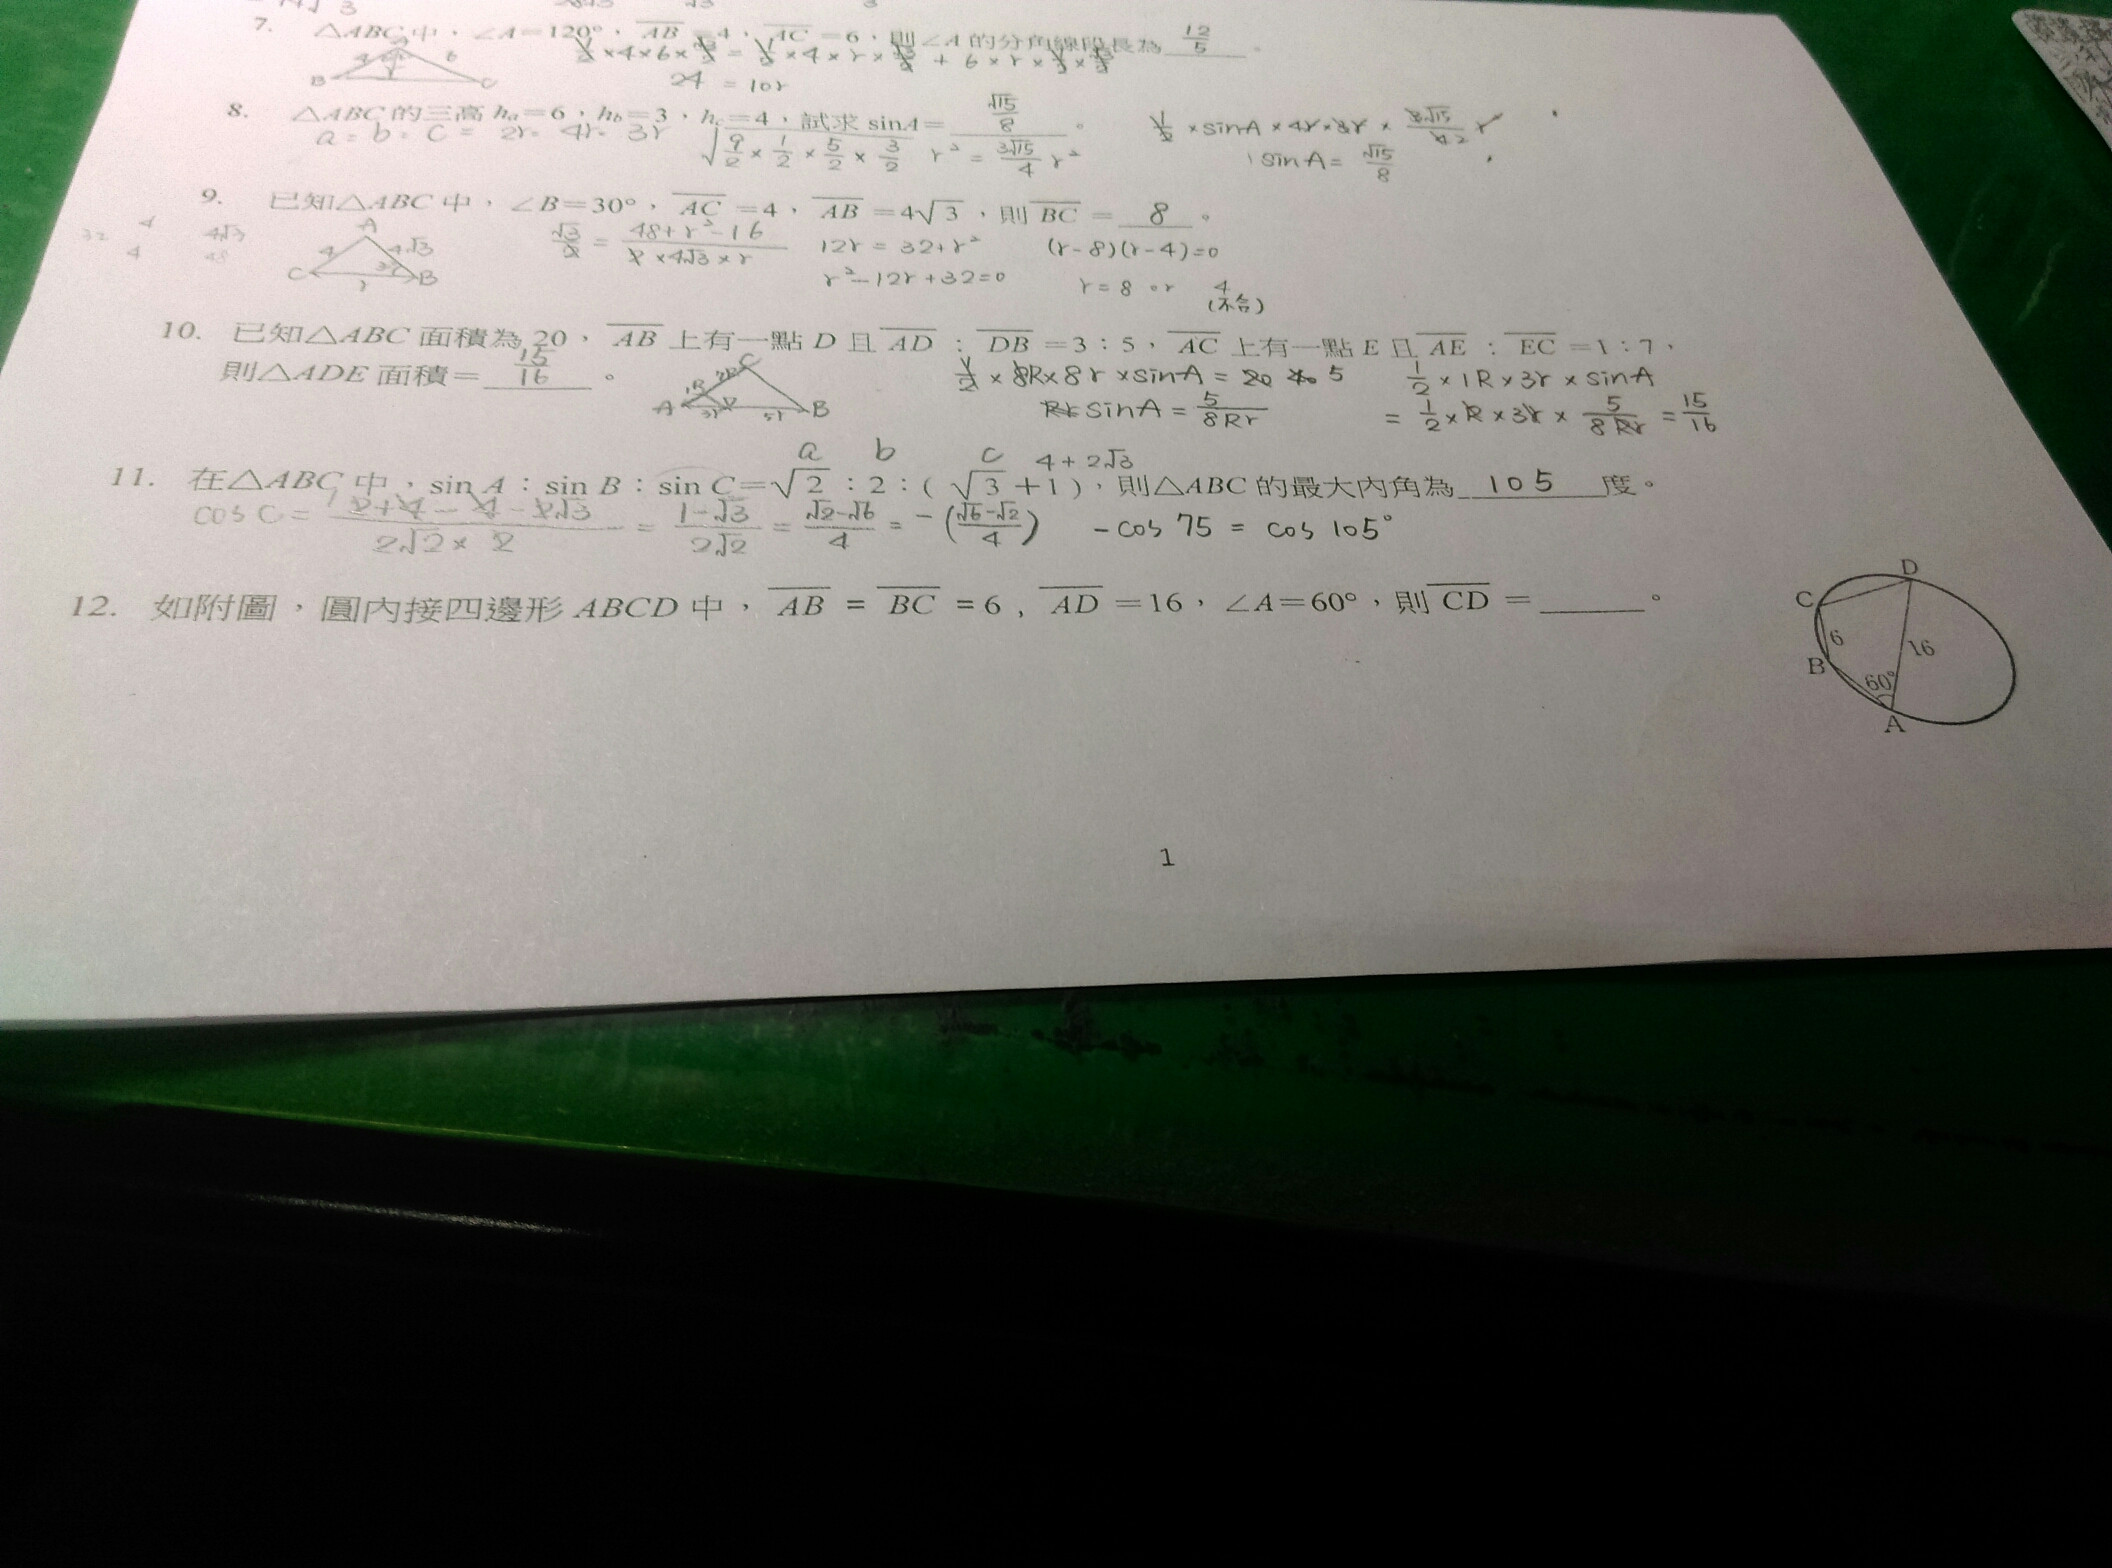 7. △ABC中，∠A＝120°，AB＝4，AC＝6，則∠A的分角線段長為 12/5 。
24 = 10r
8. △ABC的三高 ha＝6，hb＝3，hc＝4，試求 sinA＝ √15/8 。
a : b : c = 2r : 4r : 3r
√(9/2 × 1/2 × 5/2 × 3/2) r² = 3√15/4 r²
sinA = √15/8
9. 已知△ABC中，∠B＝30°，AC＝4，AB＝4√3，則BC＝ 8 。
A 4 4√3 C B r
√3/2 = (48+r²-16)/(2×4√3×r) 12r = 32+r² (r-8)(r-4)=0
r²-12r+32=0 r=8 or 4
(不合)
10. 已知△ABC面積為20，AB上有一點D且AD：DB＝3：5，AC上有一點E且AE：EC＝1：7，
則△ADE面積＝ 15/16 。
1/2 × 8R × 8r × sinA = 20 5 1/2 × 1R × 3r × sinA
sinA = 5/8Rr = 1/2 × R × 3r × 5/8Rr = 15/16
A B C 3r 5r 1R
a b c 4+2√3
11. 在△ABC中，sin A：sin B：sin C＝√2：2：(√3＋1)，則△ABC的最大內角為 105 度。
cos C = (2+4-4-2√3)/(2√2×2) = (1-√3)/(2√2) = (√2-√6)/4 = -((√6-√2)/4) -cos 75 = cos 105°
12. 如附圖，圓內接四邊形ABCD中，AB = BC = 6，AD＝16，∠A＝60°，則CD＝＿＿＿。
D
C
6
16
B
60°
A
1